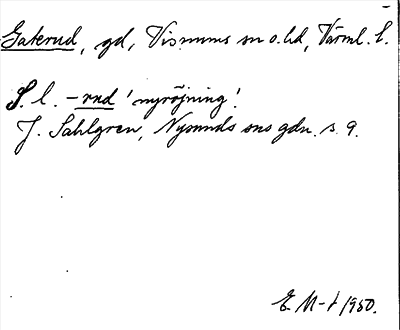 Gaterud, gd, Visnums sn o. hd, Värml. l.
S. l. -rud 'nyröjning'.
J. Sahlgren, Nysunds sns gdn. s. 9.
E. M-t 1950.